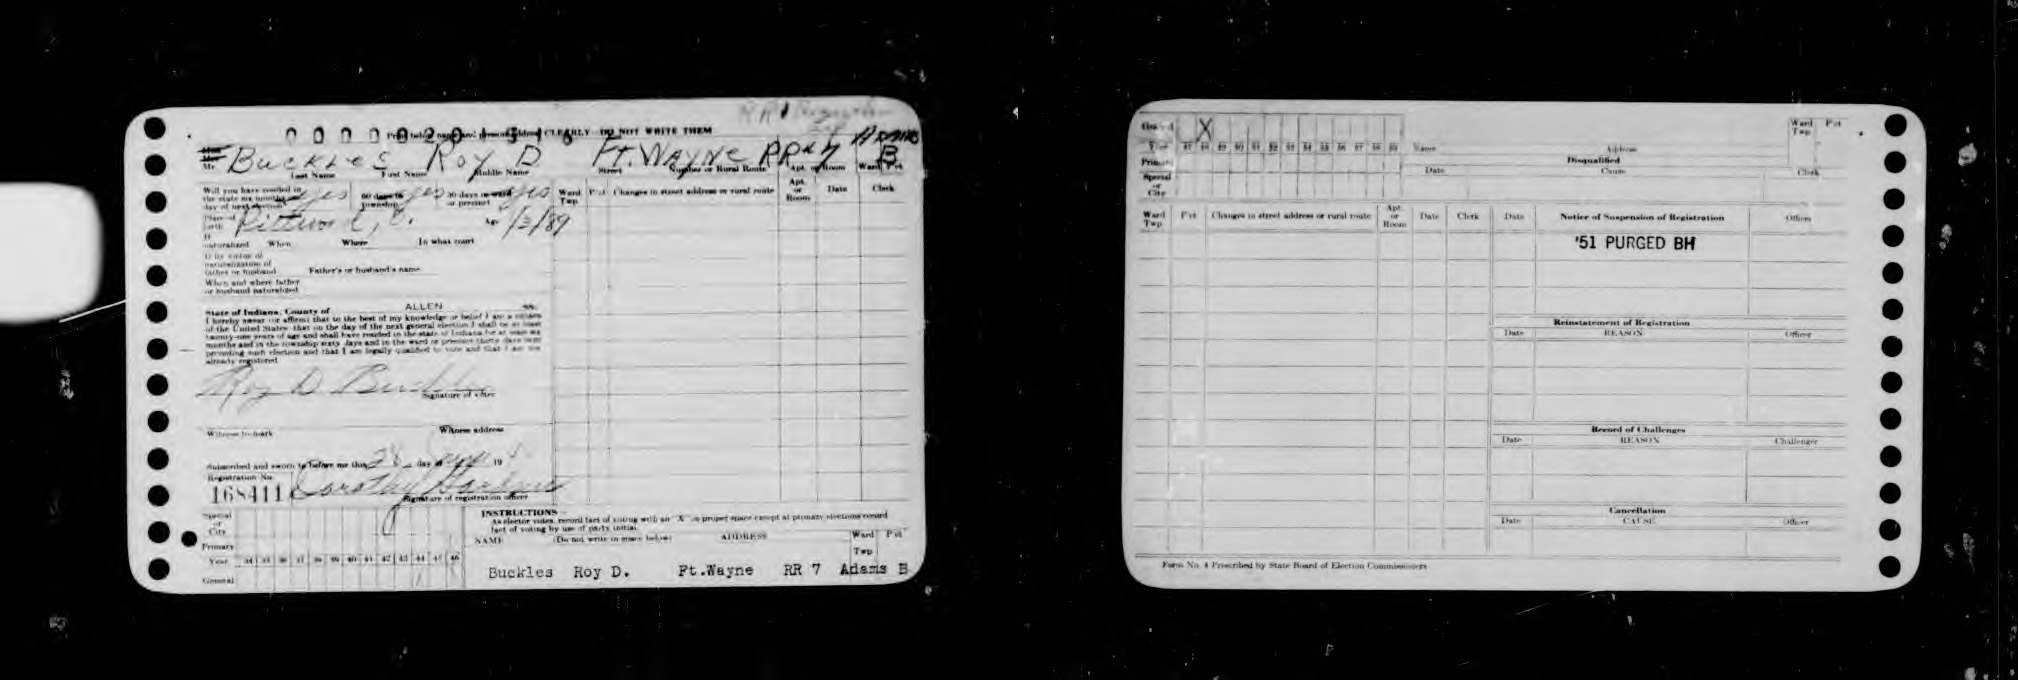 RR
Print below name and present address CLEARLY DO NOT WRITE THEM
Mr. Buckles Roy D Ft. Wayne RR # 7 Adams B
Last Name First Name Middle Name Street Number or Rural Route Apt. or Room Ward Pct
Will you have resided in the state six months day of next election yes 60 days in township yes 30 days in ward or precinct yes
Ward Twp Pct Changes in street address or rural route Apt. or Room Date Clerk
Place of birth Age /89
If naturalized When Where In what court
If by virtue of naturalization of father or husband Father's or husband's name
When and where father or husband naturalized
State of Indiana, County of ALLEN ss:
I hereby swear (or affirm) that to the best of my knowledge or belief I am a citizen
of the United States, that on the day of the next general election I shall be at least
twenty-one years of age and shall have resided in the state of Indiana for at least six
months and in the township sixty days and in the ward or precinct thirty days next
preceding such election and that I am legally qualified to vote and that I am not
already registered
Roy D Buckles
Signature of voter
Witness to mark Witness address
Subscribed and sworn to before me this 28 day of 19
Registration No.
168411 Dorothy
Signature of registration officer
Special or City
Primary
Year 34 35 36 37 38 39 40 41 42 43 44 45 46
General
INSTRUCTIONS
As elector votes, record fact of voting with an "X" in proper space except at primary elections record
fact of voting by use of party initial.
NAME (Do not write in space below) ADDRESS Ward Twp Pct
Buckles Roy D. Ft.Wayne RR 7 Adams B
General X
Year 47 48 49 50 51 52 53 54 55 56 57 58 59
Primary
Special or City
Name Address Ward Twp Pct
Disqualified
Date Cause Clerk
Ward Twp Pct Changes in street address or rural route Apt. or Room Date Clerk
Date Notice of Suspension of Registration Officer
'51 PURGED BH
Reinstatement of Registration
Date REASON Officer
Record of Challenges
Date REASON Challenger
Cancellation
Date CAUSE Officer
Form No. 4 Prescribed by State Board of Election Commissioners